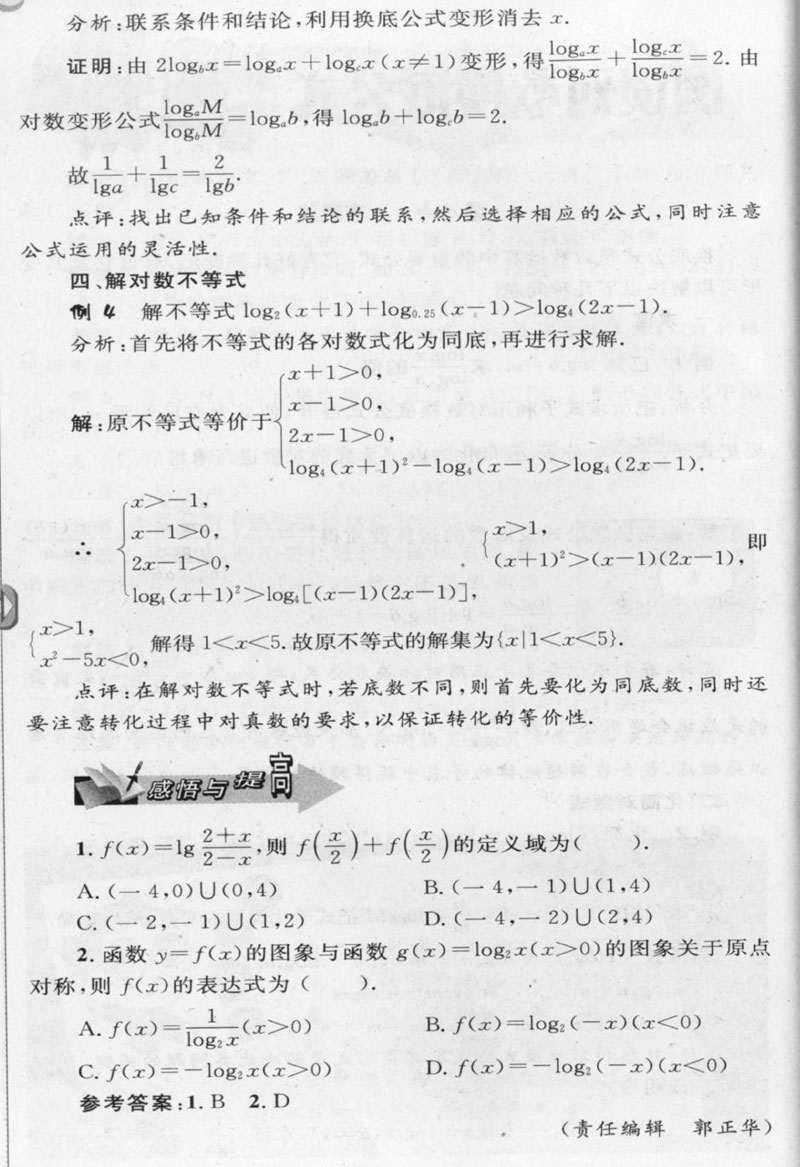 分析:联系条件和结论,利用换底公式变形消去 x.
证明:由 2log_b x=log_a x+log_c x(x≠1)变形,得 log_a x/log_b x + log_c x/log_b x =2. 由
对数变形公式 log_a M/log_b M =log_a b,得 log_a b+log_c b=2.
故 1/lga + 1/lgc = 2/lgb.
点评:找出已知条件和结论的联系,然后选择相应的公式,同时注意
公式运用的灵活性.
四、解对数不等式
例 4 解不等式 log₂(x+1)+log₀.₂₅(x-1)>log₄(2x-1).
分析:首先将不等式的各对数式化为同底,再进行求解.
解:原不等式等价于{
x+1>0,
x-1>0,
2x-1>0,
log₄(x+1)²-log₄(x-1)>log₄(2x-1).
∴ {
x>-1,
x-1>0,
2x-1>0,
log₄(x+1)²>log₄[(x-1)(2x-1)],
{
x>1,
(x+1)²>(x-1)(2x-1),
即
{
x>1,
x²-5x<0,
解得 1<x<5. 故原不等式的解集为{x|1<x<5}.
点评:在解对数不等式时,若底数不同,则首先要化为同底数,同时还
要注意转化过程中对真数的要求,以保证转化的等价性.
感悟与提高
1. f(x)=lg (2+x)/(2-x),则 f(x/2)+f(x/2)的定义域为( ).
A. (-4,0)∪(0,4) B. (-4,-1)∪(1,4)
C. (-2,-1)∪(1,2) D. (-4,-2)∪(2,4)
2. 函数 y=f(x)的图象与函数 g(x)=log₂x(x>0)的图象关于原点
对称,则 f(x)的表达式为( ).
A. f(x)=1/log₂x (x>0) B. f(x)=log₂(-x)(x<0)
C. f(x)=-log₂x(x>0) D. f(x)=-log₂(-x)(x<0)
参考答案:1. B 2. D
(责任编辑 郭正华)